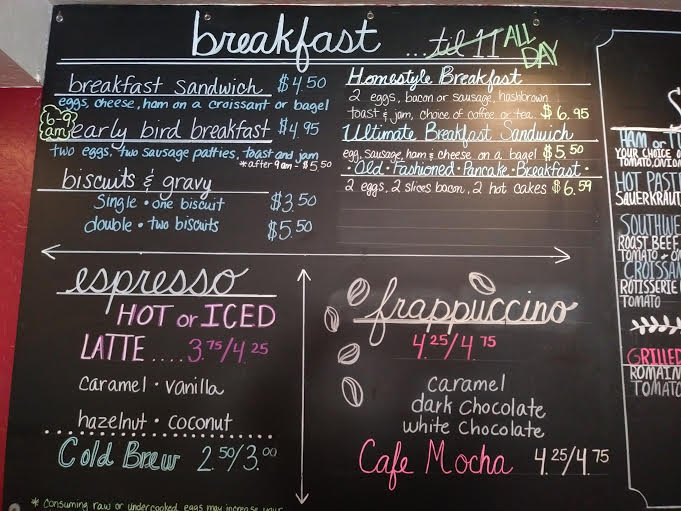 breakfast ...til 11 ALL DAY
breakfast sandwich $4.50
eggs, cheese, ham on a croissant or bagel
6-9 am early bird breakfast $4.95
two eggs, two sausage patties, toast and jam
*after 9am - $5.50
biscuits & gravy
single • one biscuit $3.50
double • two biscuits $5.50
Homestyle Breakfast
2 eggs, bacon or sausage, hashbrown
toast & jam, choice of coffee or tea $6.95
Ultimate Breakfast Sandwich
egg, sausage, ham & cheese on a bagel $5.50
• Old • Fashioned • Pancake • Breakfast •
2 eggs, 2 slices bacon, 2 hot cakes $6.59
espresso
HOT or ICED
LATTE .... 3.75/4.25
caramel • vanilla
hazelnut • coconut
Cold Brew 2.50/3.00
* Consuming raw or undercooked eggs may increase your
frappuccino
4.25/4.75
caramel
dark Chocolate
white Chocolate
Cafe Mocha 4.25/4.75
HAM or
YOUR CHOICE
TOMATO, ONION
HOT
SAUERKRAUT
ROAST BEEF
TOMATO
ROTISSERIE
TOMATO
GRILLED
TOMATO